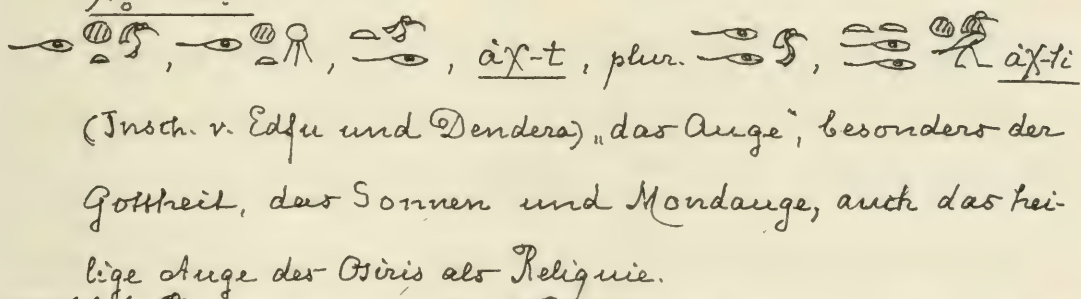 , , , ȧχ-t, plur. , ȧχ-ti
(Insch. v. Edfu und Dendera) „das Auge“, besonders der
Gottheit, das Sonnen und Mondauge, auch das hei-
lige Auge des Osiris als Reliquie.